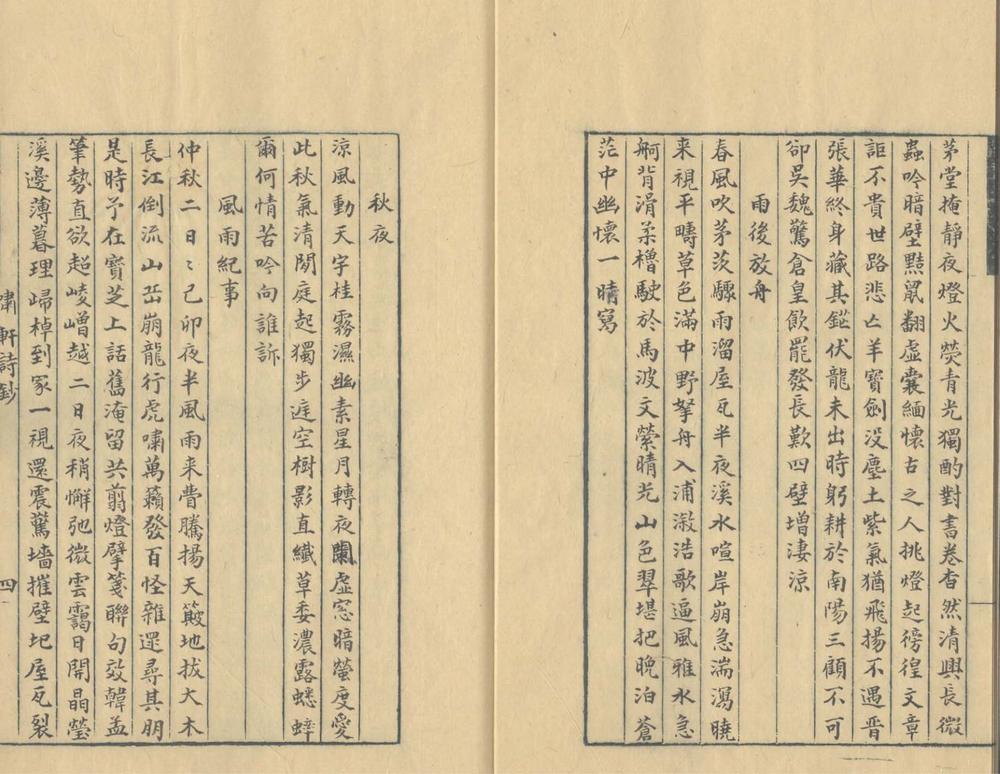 茅堂掩靜夜燈火熒青光獨酌對書卷杳然清興長微
蟲吟暗壁黠鼠翻虛囊緬懷古之人挑燈起徬徨文章
詎不貴世路悲亡羊寶劍没塵土紫氣猶飛揚不遇晋
張華終身藏其鋩伏龍未出時躬耕於南陽三顧不可
卻吳魏驚倉皇飲罷發長歎四壁增淒涼
雨後放舟
春風吹茅茨驟雨溜屋瓦半夜溪水喧岸崩急湍瀉曉
来視平疇草色滿中野拏舟入浦溆浩歌逼風雅水急
舸背滑柔櫓駛於馬波文縈晴光山色翠堪把晚泊蒼
茫中幽懷一晴寫
秋夜
涼風動天宇桂霧濕幽素星月轉夜闌虛窓暗螢度愛
此秋氣清閒庭起獨步庭空樹影直纖草委濃露蟋蟀
爾何情苦吟向誰訴
風雨紀事
仲秋二日〻己卯夜半風雨来飛騰揚天簸地拔大木
長江倒流山岳崩龍行虎嘯萬籟發百怪雜遝尋其朋
是時予在寶芝上話舊淹留共翦燈擘箋聯句效韓孟
筆勢直欲超崚嶒越二日夜稍懈弛微雲靄日開晶瑩
溪邊薄暮理歸棹到家一視還震驚墻摧壁圮屋瓦裂
嘯軒詩鈔
四